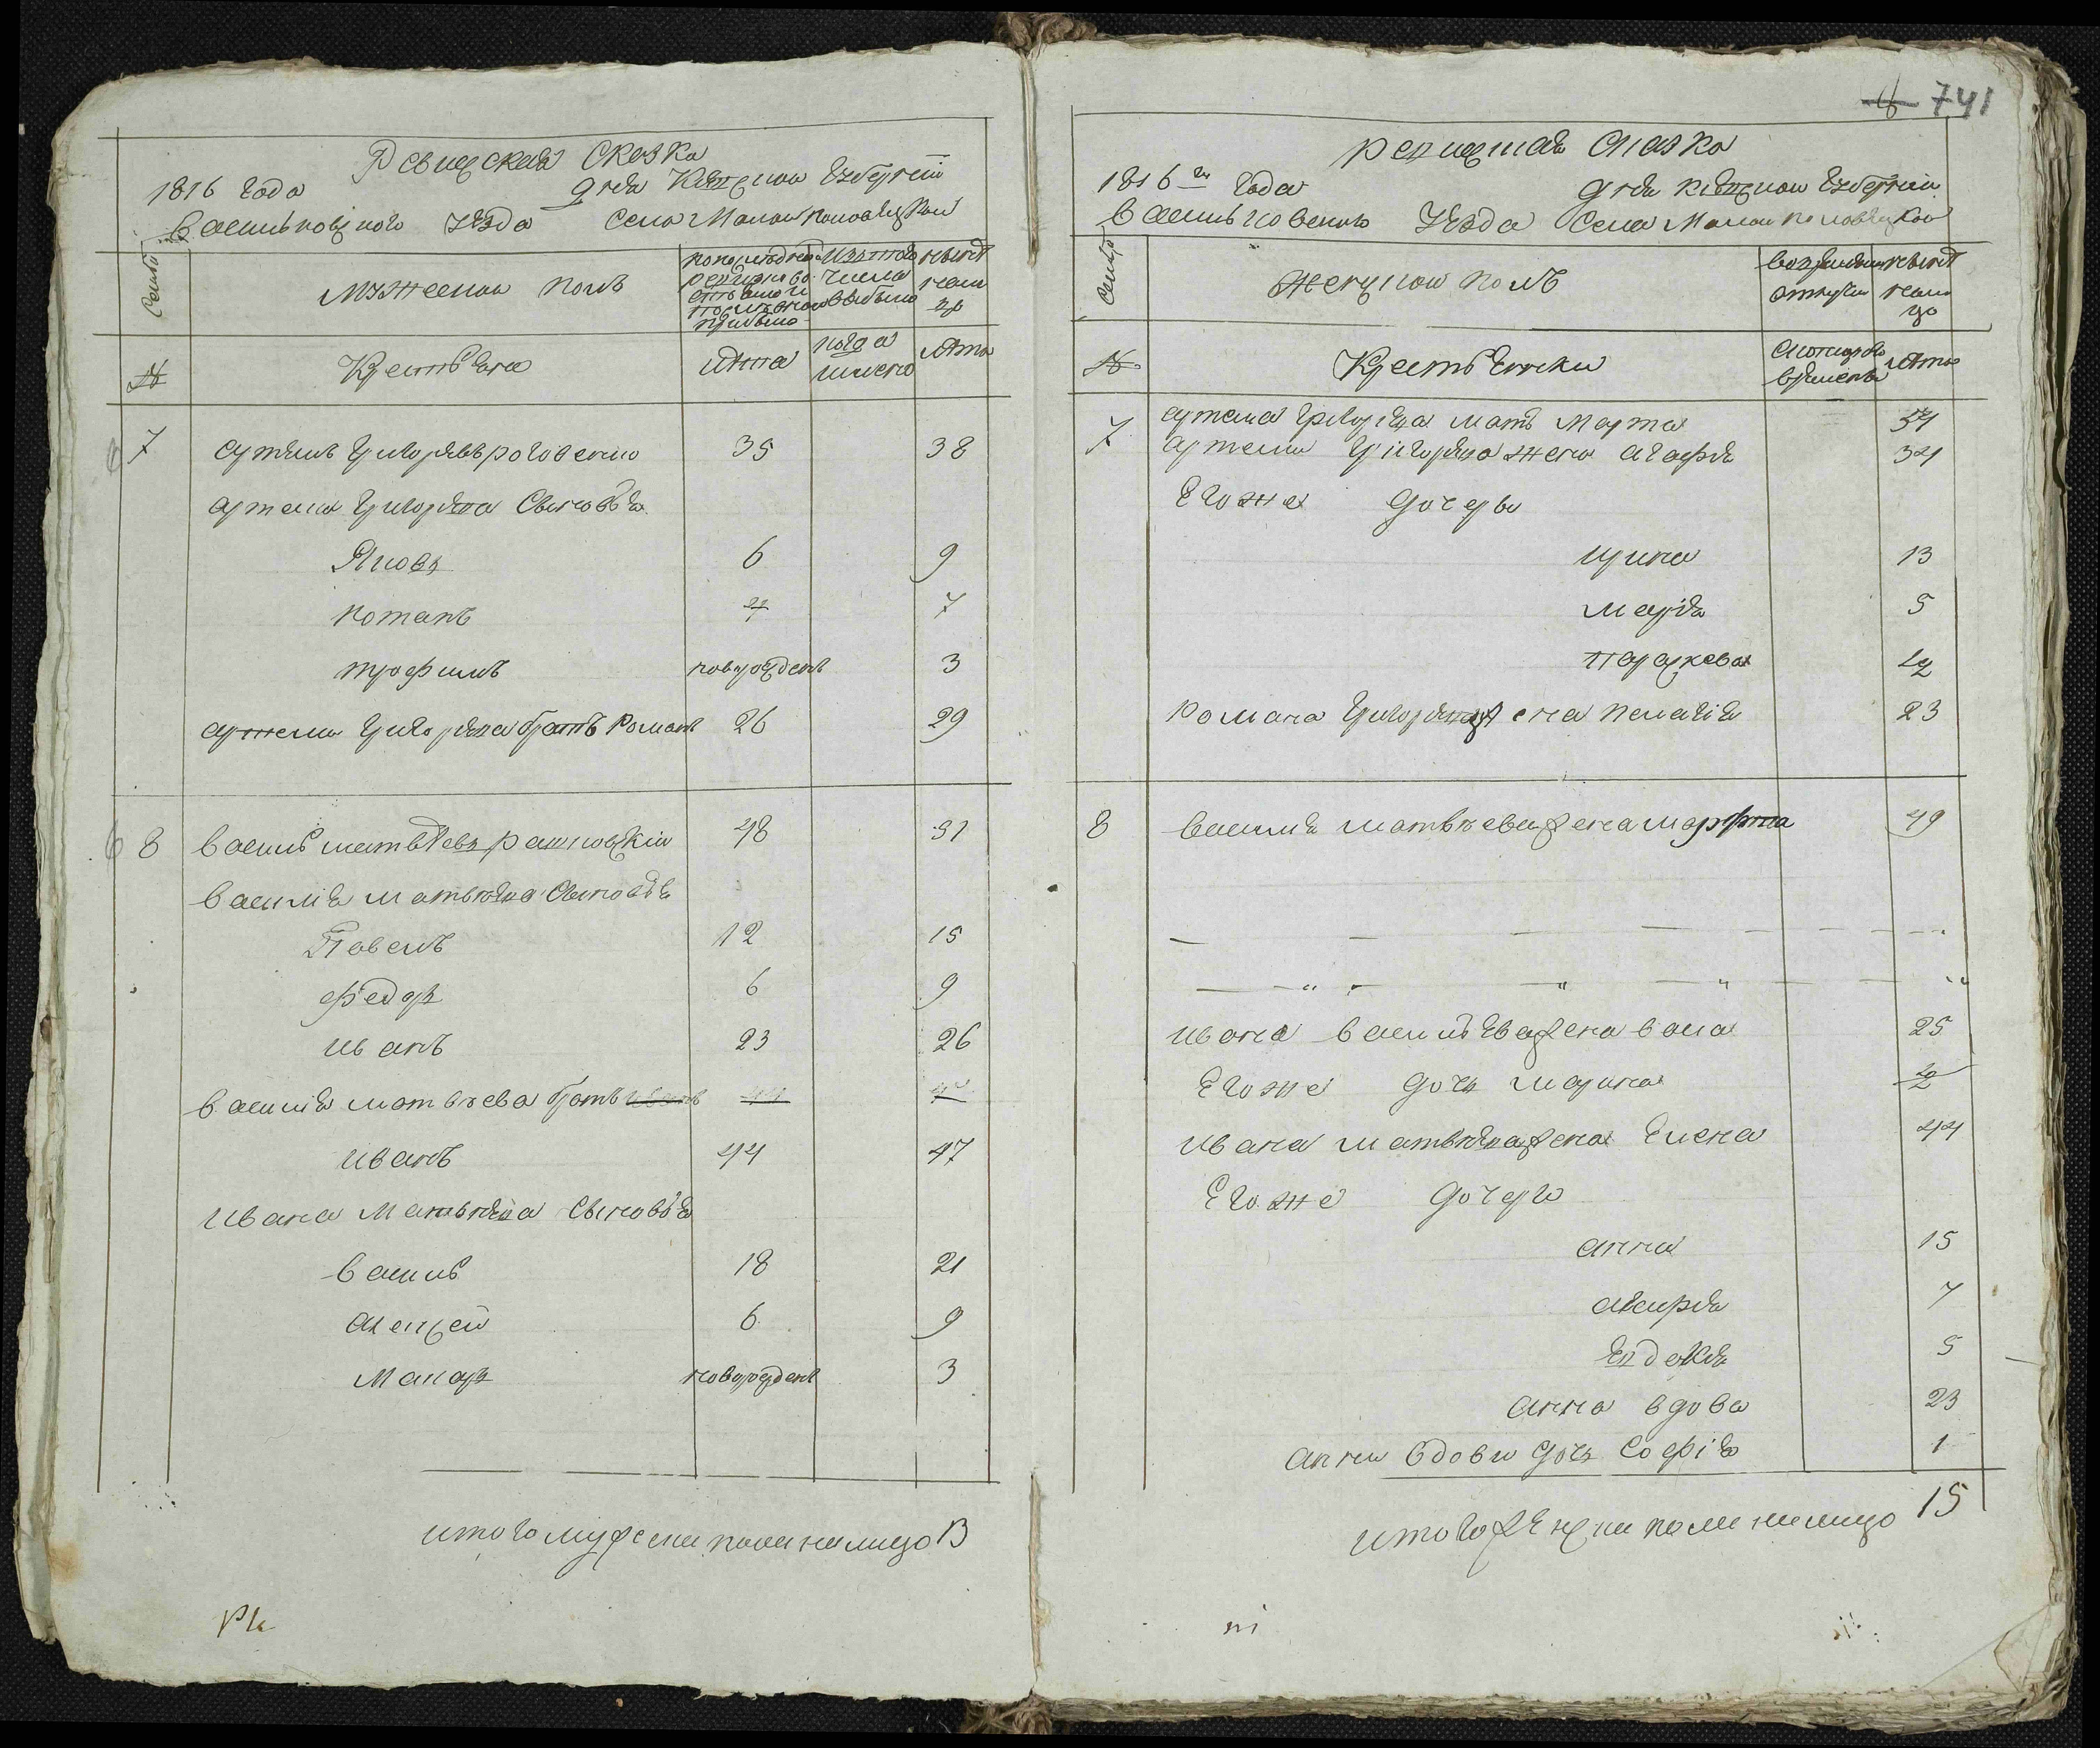 Ревижская Сказка
1816 года для Киевской Губернiи
Васильковского Уезда Села Малой Половецкой
Семьи
мужеской полъ
по последней ревизии состояло и после оной прибыло
Изъ того числа выбыло
ныне налицо
№
Крестьяне
лета
когда именно
лета
7 Артемъ Григорьевъ роговенко 35 38
Артема Григорьева Сыновья
Яковъ 6 9
потапъ 4 7
трофимъ новорожденъ 3
артема Григорьева братъ Романъ 26 29
8 василь матвеевъ рашковскiй 48 51
василiя матвеева Сыновья
Павелъ 12 15
федоръ 6 9
иванъ 23 26
василiя матвеева братъ иванъ 44 47
иванъ 44 47
ивана Матвеева Сыновья
василь 18 21
алексей 6 9
Макаръ новорожденъ 3
итого мужеска пола налицо 13
741
ревижская Сказка
1816 го года для Киевской Губернiи
васильковского Уезда Села Малой половецкой
Семьи
женской полъ
во временной отлучке
ныне налицо
№
Крестьянки
с которого времени
лета
7 артема Григорьева мать Марта 54
Артема Григорьева жена агафiя 34
Егоже дочеры
ирина 13
марiя 5
параскева 2
Романа Григорьева жена пелагiя 23
8 василiя матвеева жена марфина 49
ивана васильева жена васа 25
Егоже дочь марина 2
ивана матвеева жена Елена 44
Егоже дочеры
анна 15
агафiя 7
Евдокiя 5
анна вдова 23
анны вдовы дочь Софiя 1
итого женска пола налицо 15